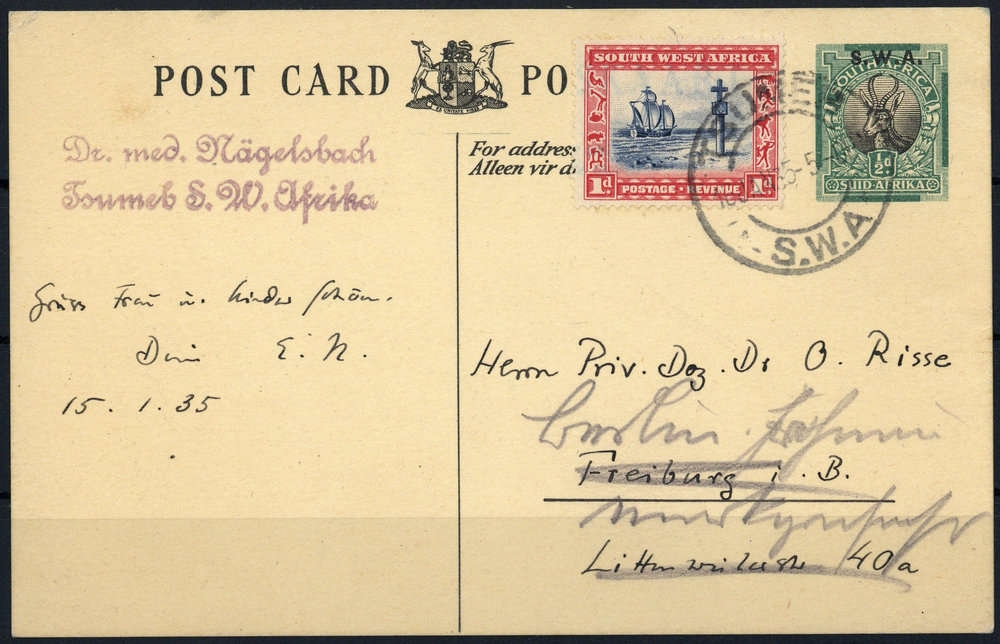 POST CARD
PO
For address
Alleen vir d
Dr. med. Nägelsbach
Tsumeb S. W. Afrika
Gruss Frau u. Kinder schön.
Dein E. N.
15. 1. 35
SOUTH WEST AFRICA
1d. POSTAGE · REVENUE 1d.
S.W.A.
SOUTH AFRICA
½d
SUID-AFRIKA
S.W.A
Herrn Priv. Doz. Dr O. Risse
Berlin
Freiburg i. B.
40a